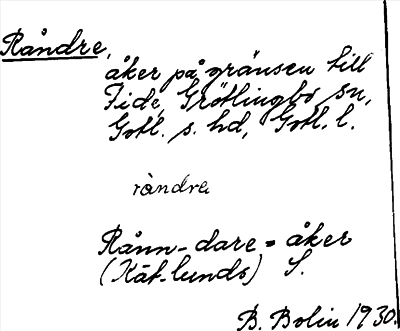 Råndre,
åker på gränsen till
Fide, Grötlingbo sn,
Gotl. s. hd, Gotl. l.
råndra
Rånn-dare = åker
(Kät-lunds) S.
B. Bolin 1930.